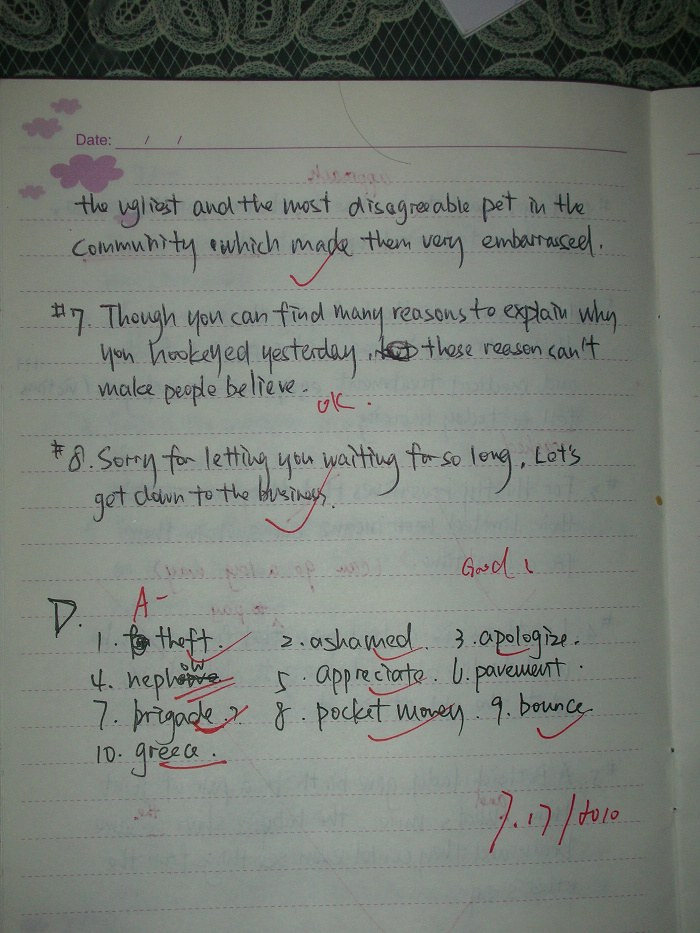 Date: / /
the ugliest and the most disagreeable pet in the
community which made them very embarrassed.
#7. Though you can find many reasons to explain why
you hookeyed yesterday, these reason can't
make people believe.
OK.
#8. Sorry for letting you waiting for so long. Let's
get down to the business.
Good!
A-
D.
1. theft. 2. ashamed. 3. apologize.
4. nephow 5. appreciate. 6. pavement.
7. brigade. 8. pocket money. 9. bounce
10. greece.
7.17/2010